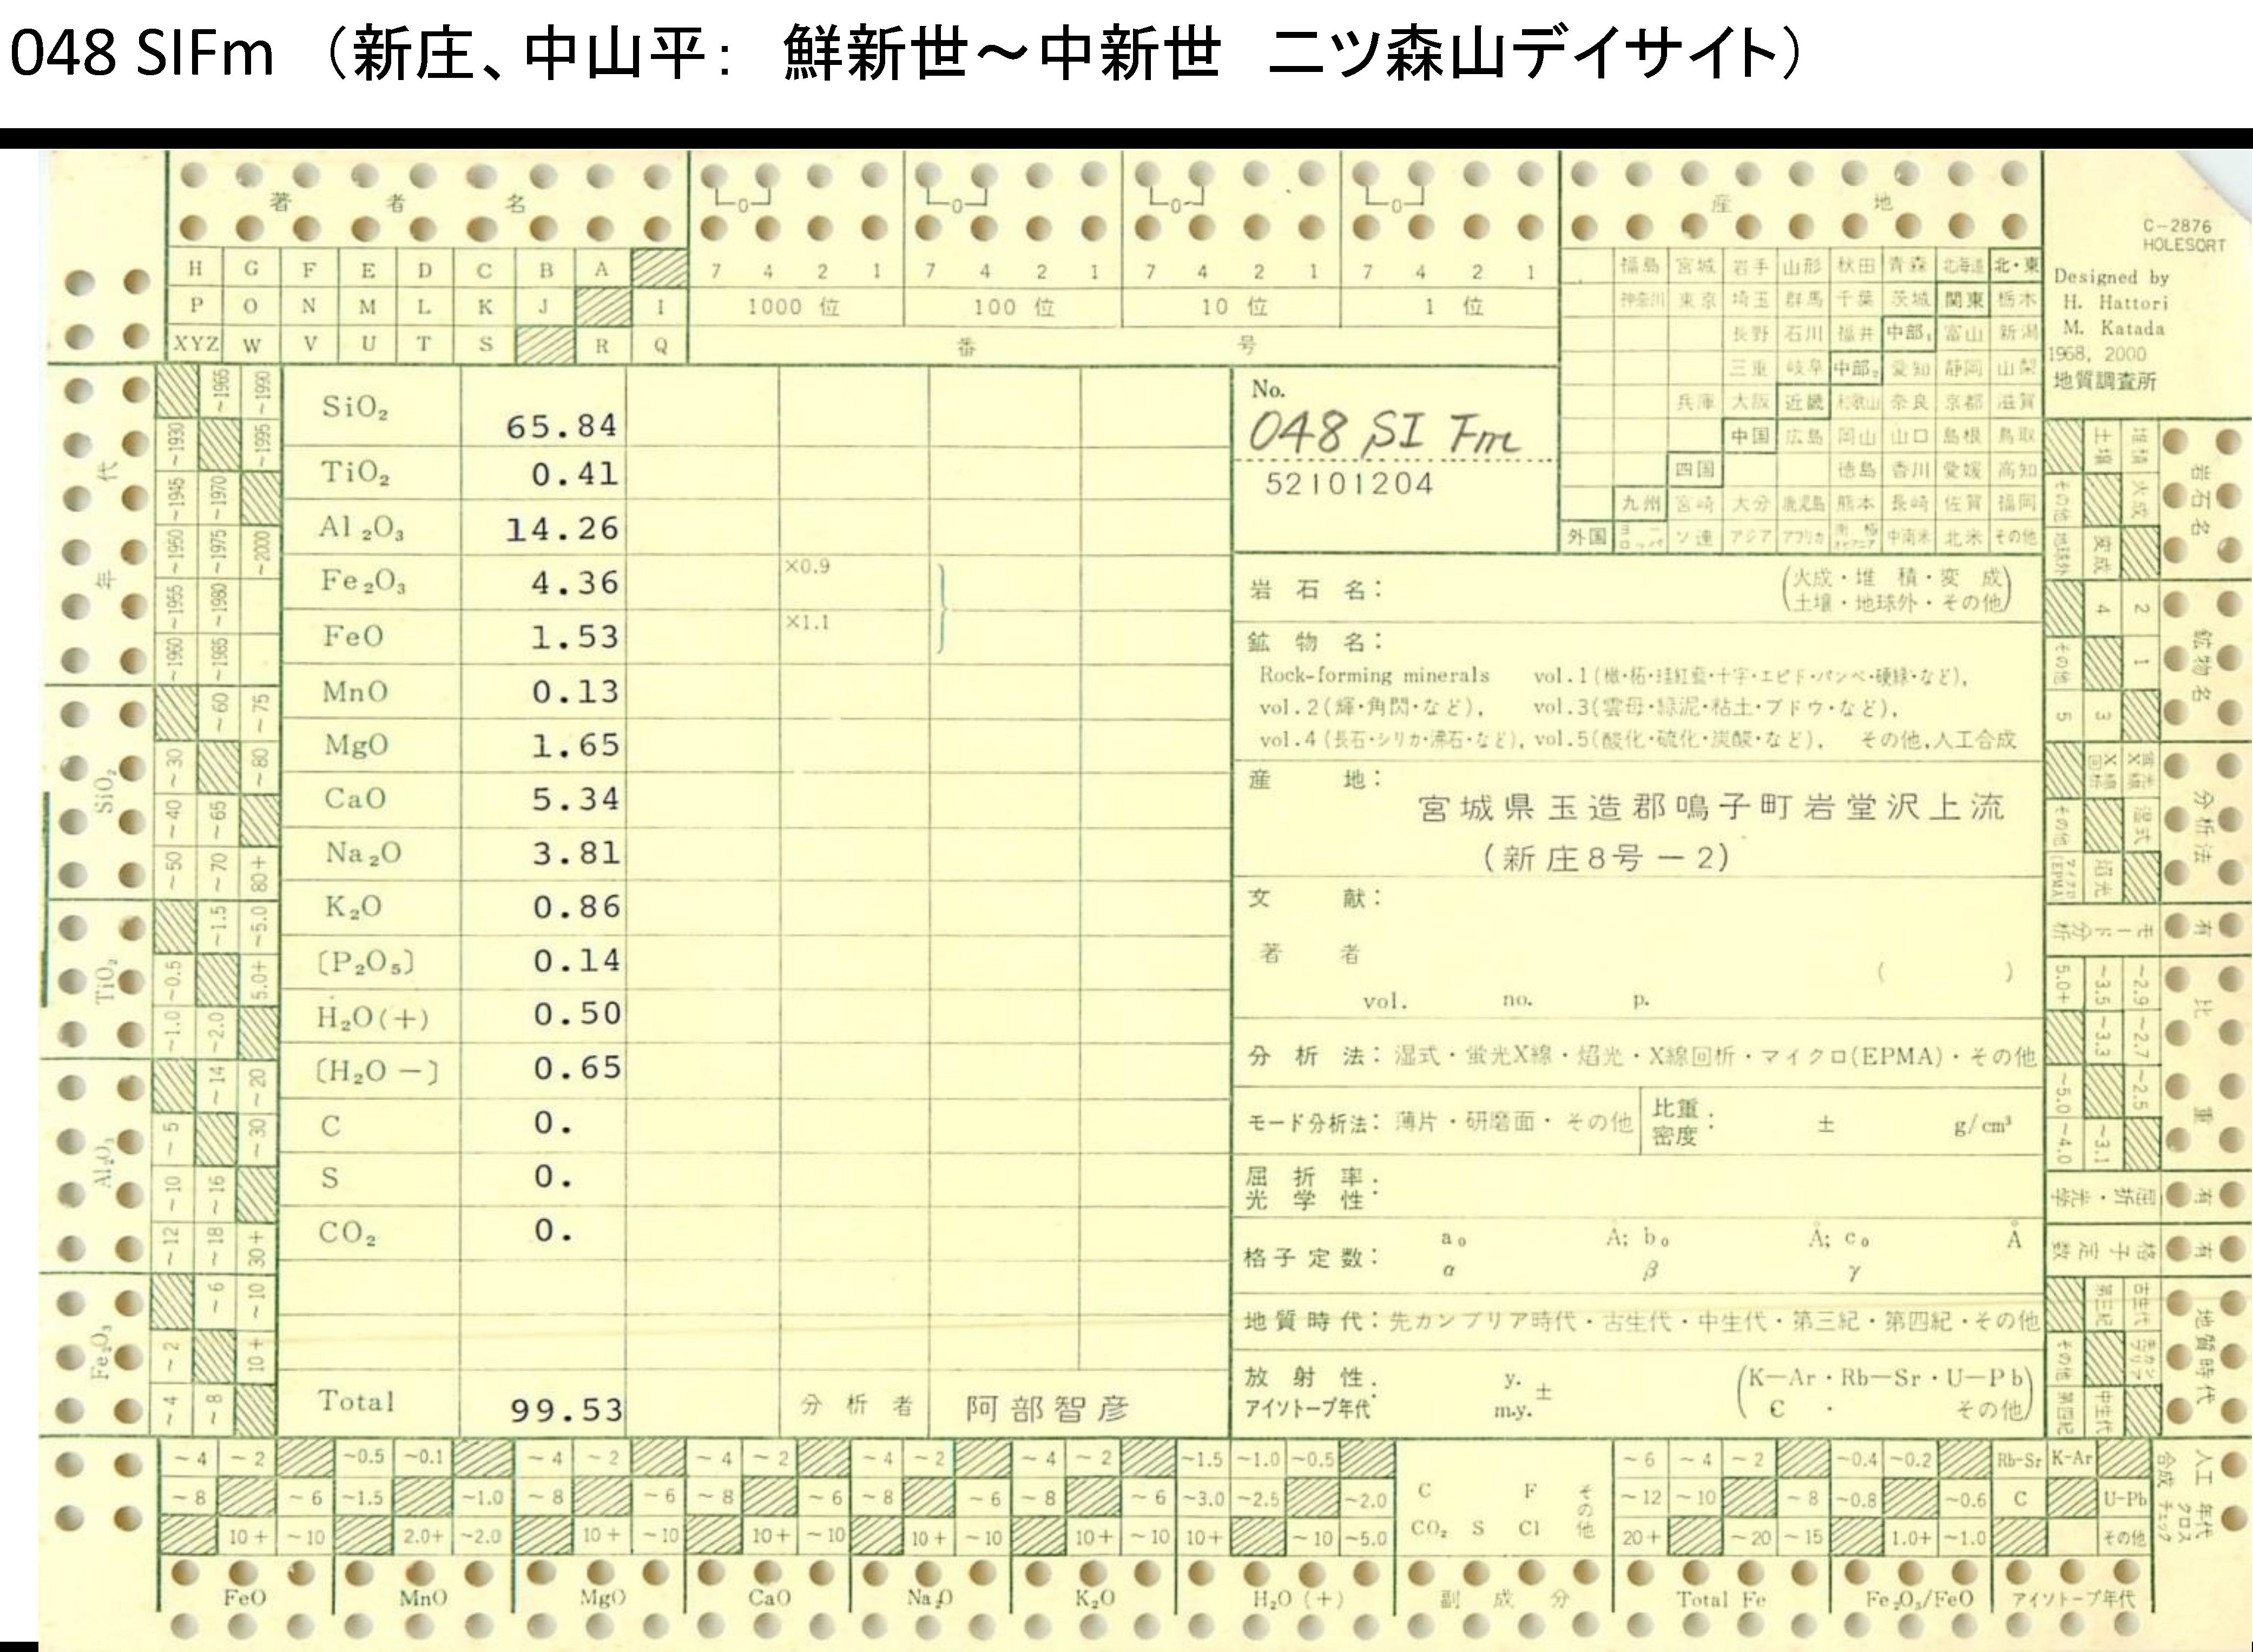 048 SIFm （新庄、中山平： 鮮新世～中新世 二ツ森山デイサイト）
著 者 名
H G F E D C B A
P O N M L K J I
XYZ W V U T S R Q
0 0 0 0
7 4 2 1 7 4 2 1 7 4 2 1 7 4 2 1
1000 位 100 位 10 位 1 位
番 号
産 地
福島 宮城 岩手 山形 秋田 青森 北海道 北・東
神奈川 東京 埼玉 群馬 千葉 茨城 関東 栃木
長野 石川 福井 中部₁ 富山 新潟
三重 岐阜 中部₂ 愛知 静岡 山梨
兵庫 大阪 近畿 和歌山 奈良 京都 滋賀
中国 広島 岡山 山口 島根 鳥取
四国 徳島 香川 愛媛 高知
九州 宮崎 大分 鹿児島 熊本 長崎 佐賀 福岡
外国 ヨーロッパ ソ連 アジア アフリカ 南極 オセアニア 中南米 北米 その他
C-2876
HOLESORT
Designed by
H. Hattori
M. Katada
1968, 2000
地質調査所
年 代
~1965 ~1990
~1930 ~1995
~1945 ~1970
~1950 ~1975 ~2000
~1955 ~1980
~1960 ~1985
SiO₂
~60 ~75
~30 ~80
~40 ~65
~50 ~70 80+
TiO₂
~1.5 ~5.0
~0.5 5.0+
~1.0 ~2.0
Al₂O₃
~14 ~20
~5 ~30
~10 ~16
~12 ~18 30+
Fe₂O₃
~6 ~10
~2 10+
~4 ~8
SiO₂ 65.84
TiO₂ 0.41
Al₂O₃ 14.26
Fe₂O₃ 4.36 ×0.9
FeO 1.53 ×1.1
MnO 0.13
MgO 1.65
CaO 5.34
Na₂O 3.81
K₂O 0.86
〔P₂O₅〕 0.14
H₂O(+) 0.50
〔H₂O－〕 0.65
C 0.
S 0.
CO₂ 0.
Total 99.53 分 析 者 阿部智彦
No.
048 SI Fm
52101204
岩 石 名： (火成・堆 積・変 成
土壌・地球外・その他)
鉱 物 名：
Rock-forming minerals vol.1(橄・柘・珪紅藍・十字・エピド・パンペ・硬緑・など),
vol.2(輝・角閃・など), vol.3(雲母・緑泥・粘土・ブドウ・など),
vol.4(長石・シリカ・沸石・など), vol.5(酸化・硫化・炭酸・など), その他,人工合成
産 地：
宮城県玉造郡鳴子町岩堂沢上流
(新庄8号－2)
文 献：
著 者 ( )
vol. no. p.
分 析 法：湿式・蛍光X線・焰光・X線回析・マイクロ(EPMA)・その他
モード分析法：薄片・研磨面・その他 比重 密度： ± g/cm³
屈 折 率
光 学 性：
格子定数： a₀ Å; b₀ Å; c₀ Å
α β γ
地質時代：先カンブリア時代・古生代・中生代・第三紀・第四紀・その他
放 射 性
アイソトープ年代： y. m.y. ± (K－Ar・Rb－Sr・U－Pb
C ・ その他)
岩石名
土壌 堆積
その他 火成
地球外 変成
鉱物名
4 2
その他 1
5 3
分析法
X線回析 蛍光X線
その他 湿式
マイクロ(EPMA) 焰光
モード分析 有
比 重
5.0+ ~3.5 ~2.9
~3.3 ~2.7
~5.0 ~2.5
~4.0 ~3.1
屈折・光学 有
格子定数 有
地質時代
第三紀 古生代
その他 先カンブリア
第四紀 中生代
人工合成 年代クロスチェック
~4 ~2 ~0.5 ~0.1 ~4 ~2 ~4 ~2 ~4 ~2 ~4 ~2 ~1.5 ~1.0 ~0.5 ~6 ~4 ~2 ~0.4 ~0.2 Rb-Sr K-Ar
~8 ~6 ~1.5 ~1.0 ~8 ~6 ~8 ~6 ~8 ~6 ~8 ~6 ~3.0 ~2.5 ~2.0 C F その他 ~12 ~10 ~8 ~0.8 ~0.6 C U-Pb
10+ ~10 2.0+ ~2.0 10+ ~10 10+ ~10 10+ ~10 10+ ~10 10+ ~10 ~5.0 CO₂ S Cl 20+ ~20 ~15 1.0+ ~1.0 その他
FeO MnO MgO CaO Na₂O K₂O H₂O(+) 副 成 分 Total Fe Fe₂O₃/FeO アイソトープ年代